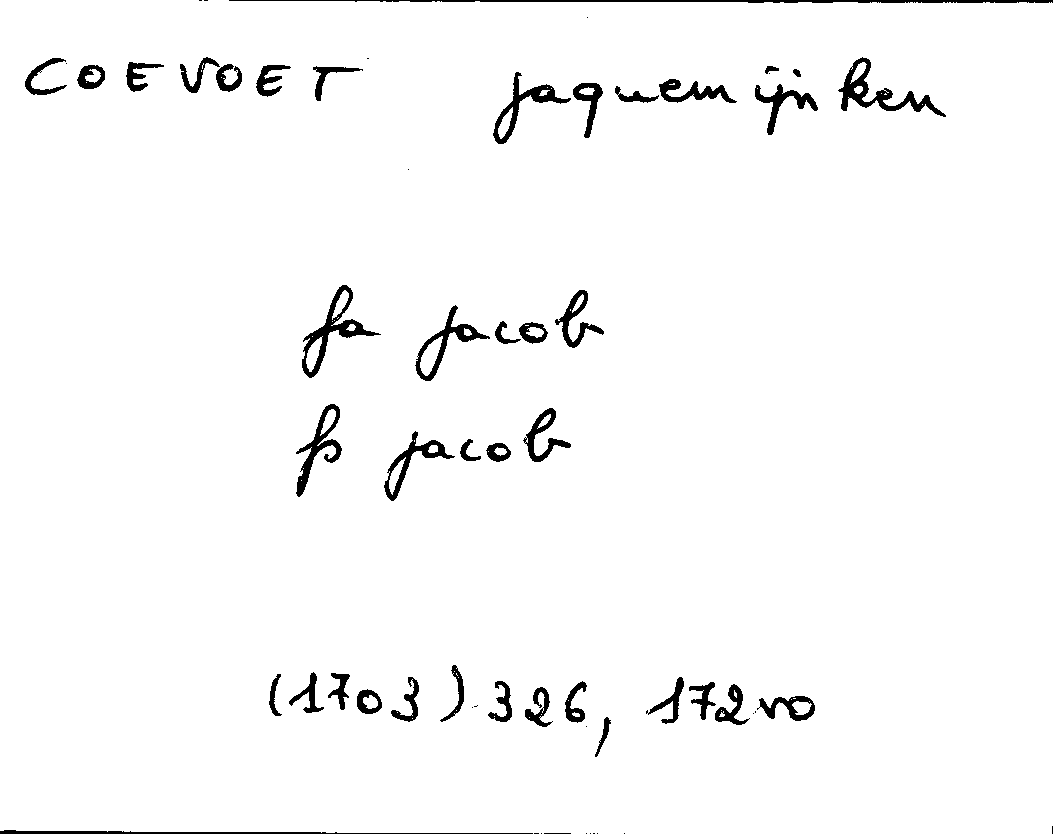 COEVOET jaquemijnken
fa jacob
fs jacob
(1703) 326, 172vo